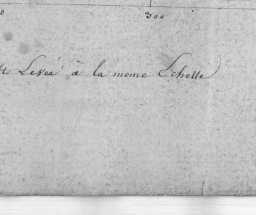 300
Levé à la meme Echelle